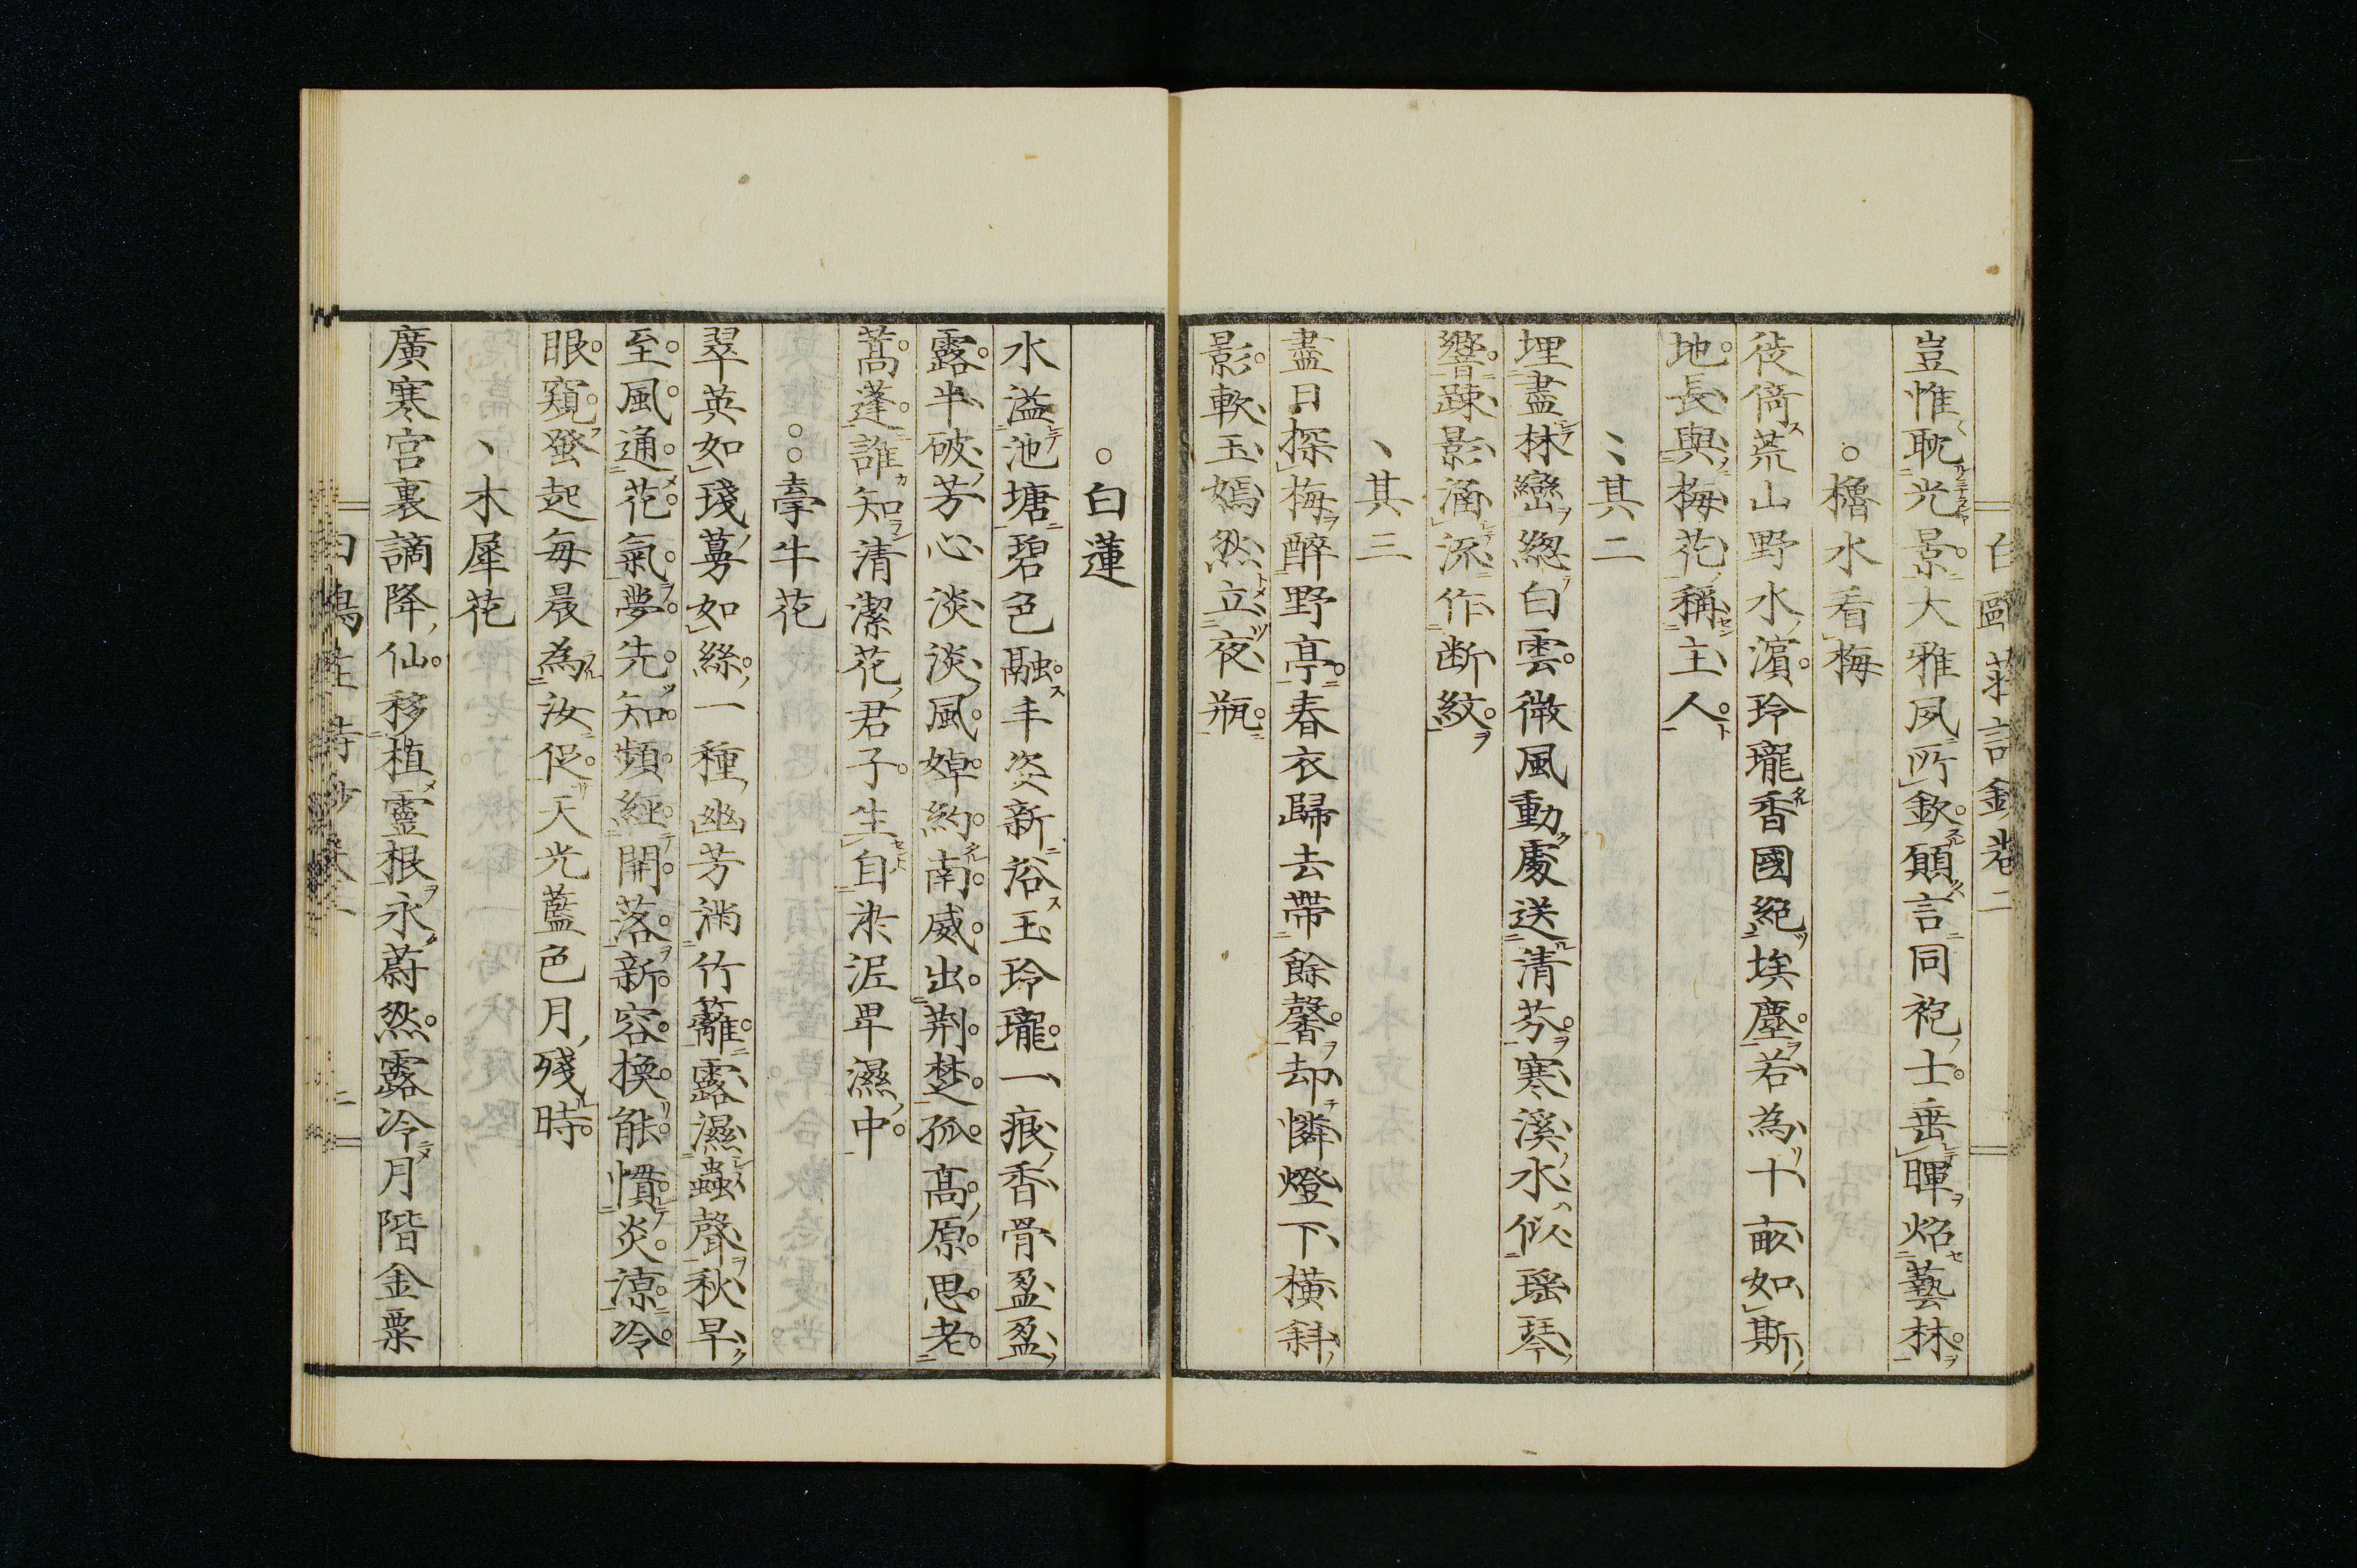 豈惟耽光景大雅夙所欽願言同袍士垂暉焰藝林
櫓水看梅
徙倚荒山野水濱玲瓏香國絕埃塵若為十畝如斯
地長與梅花稱主人
其二
埋盡林巒緫白雲微風動處送清芬寒溪水似瑶琴
響踈影涵流作断紋
其三
盡日探梅醉野亭春衣歸去帶餘馨却憐燈下橫斜
影軟玉嫣然立夜瓶
白蓮
水溢池塘碧色融丰姿新浴玉玲瓏一痕香骨盈盈
露半破芳心淡淡風婥約南威出荆楚孤高原思老
蒿蓬誰知清潔花君子生自淤泥卑濕中
牽牛花
翠英如琖蔓如絲一種幽芳滿竹籬露濕蟲聲秋早
至風通花氣夢先知頻經開落新容換能慣炎涼冷
眼窺蚤起每晨為汝促天光藍色月殘時
木犀花
廣寒宮裏謫降仙移植靈根永蔚然露冷月階金粟